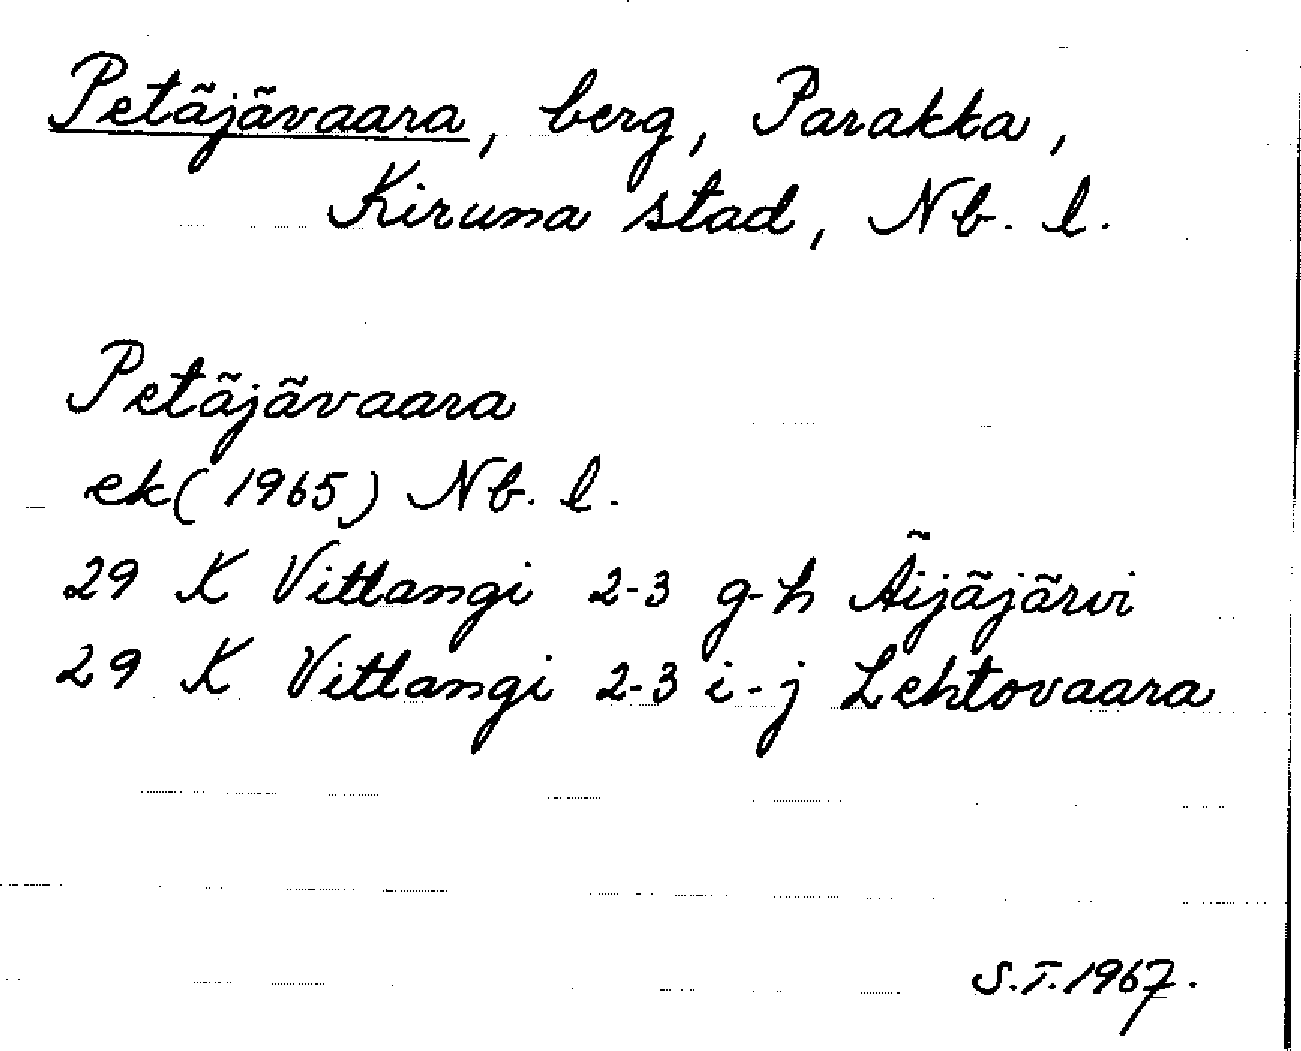 Petäjävaara, berg, Parakka,
Kiruna stad, Nb. l.
Petäjävaara
ek (1965) Nb. l.
29 K Vittangi 2-3 g-h Äijäjärvi
29 K Vittangi 2-3 i-j Lehtovaara
S.T. 1967.